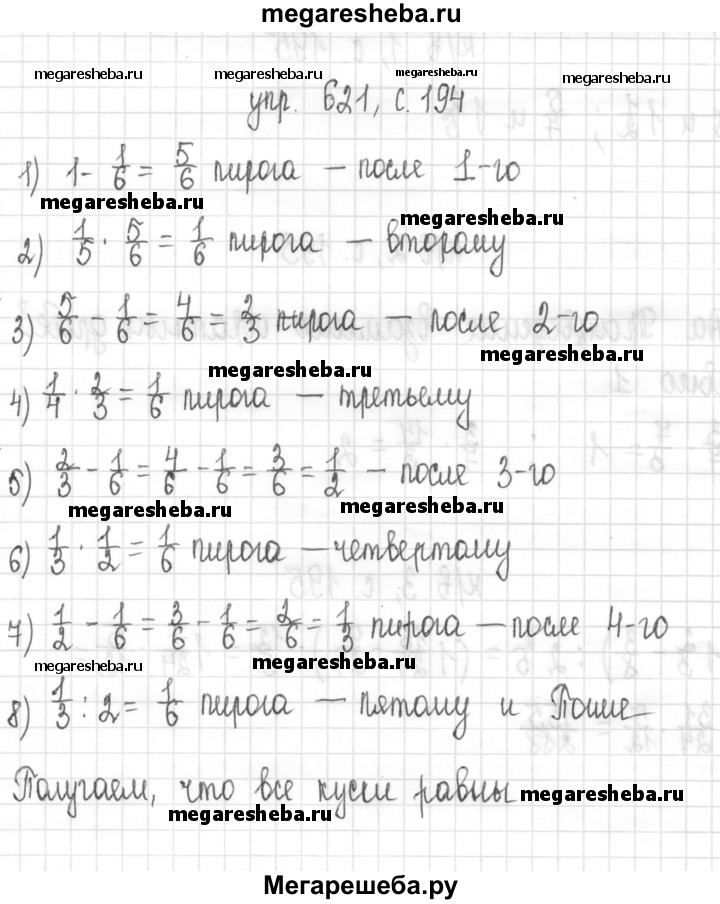 megaresheba.ru
megaresheba.ru megaresheba.ru megaresheba.ru megaresheba.ru
упр. 621, с. 194
1) 1 - 1/6 = 5/6 пирога — после 1-го
megaresheba.ru megaresheba.ru
2) 1/5 · 5/6 = 1/6 пирога — второму
3) 5/6 - 1/6 = 4/6 = 2/3 пирога — после 2-го
megaresheba.ru megaresheba.ru
4) 1/4 · 2/3 = 1/6 пирога — третьему
5) 2/3 - 1/6 = 4/6 - 1/6 = 3/6 = 1/2 — после 3-го
megaresheba.ru megaresheba.ru
6) 1/3 · 1/2 = 1/6 пирога — четвертому
7) 1/2 - 1/6 = 3/6 - 1/6 = 2/6 = 1/3 пирога — после 4-го
megaresheba.ru megaresheba.ru
8) 1/3 : 2 = 1/6 пирога — пятому и Поше
Получаем, что все куски равны megaresheba.ru
megaresheba.ru
Мегарешеба.ру